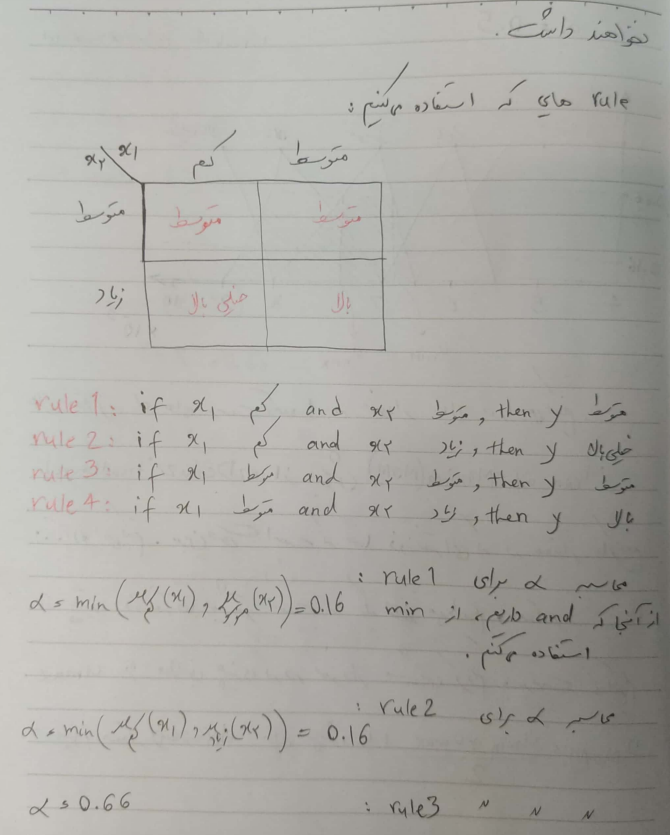 نخواهند داشت.
rule هایی که استفاده می‌کنیم:
x۲ x1 کم متوسط
متوسط متوسط متوسط
زیاد خیلی بالا بالا
rule 1: if x1 کم and x۲ متوسط, then y متوسط
rule 2: if x1 کم and x۲ زیاد, then y خیلی بالا
rule 3: if x1 متوسط and x۲ متوسط, then y متوسط
rule 4: if x1 متوسط and x۲ زیاد, then y بالا
محاسبه α برای rule1 :
α = min(μکم(x1), μمتوسط(x۲)) = 0.16
از آنجا که and داریم، از min
استفاده می‌کنیم.
محاسبه α برای rule2 :
α = min(μکم(x1), μزیاد(x۲)) = 0.16
〃 〃 〃 rule3 :
α = 0.66